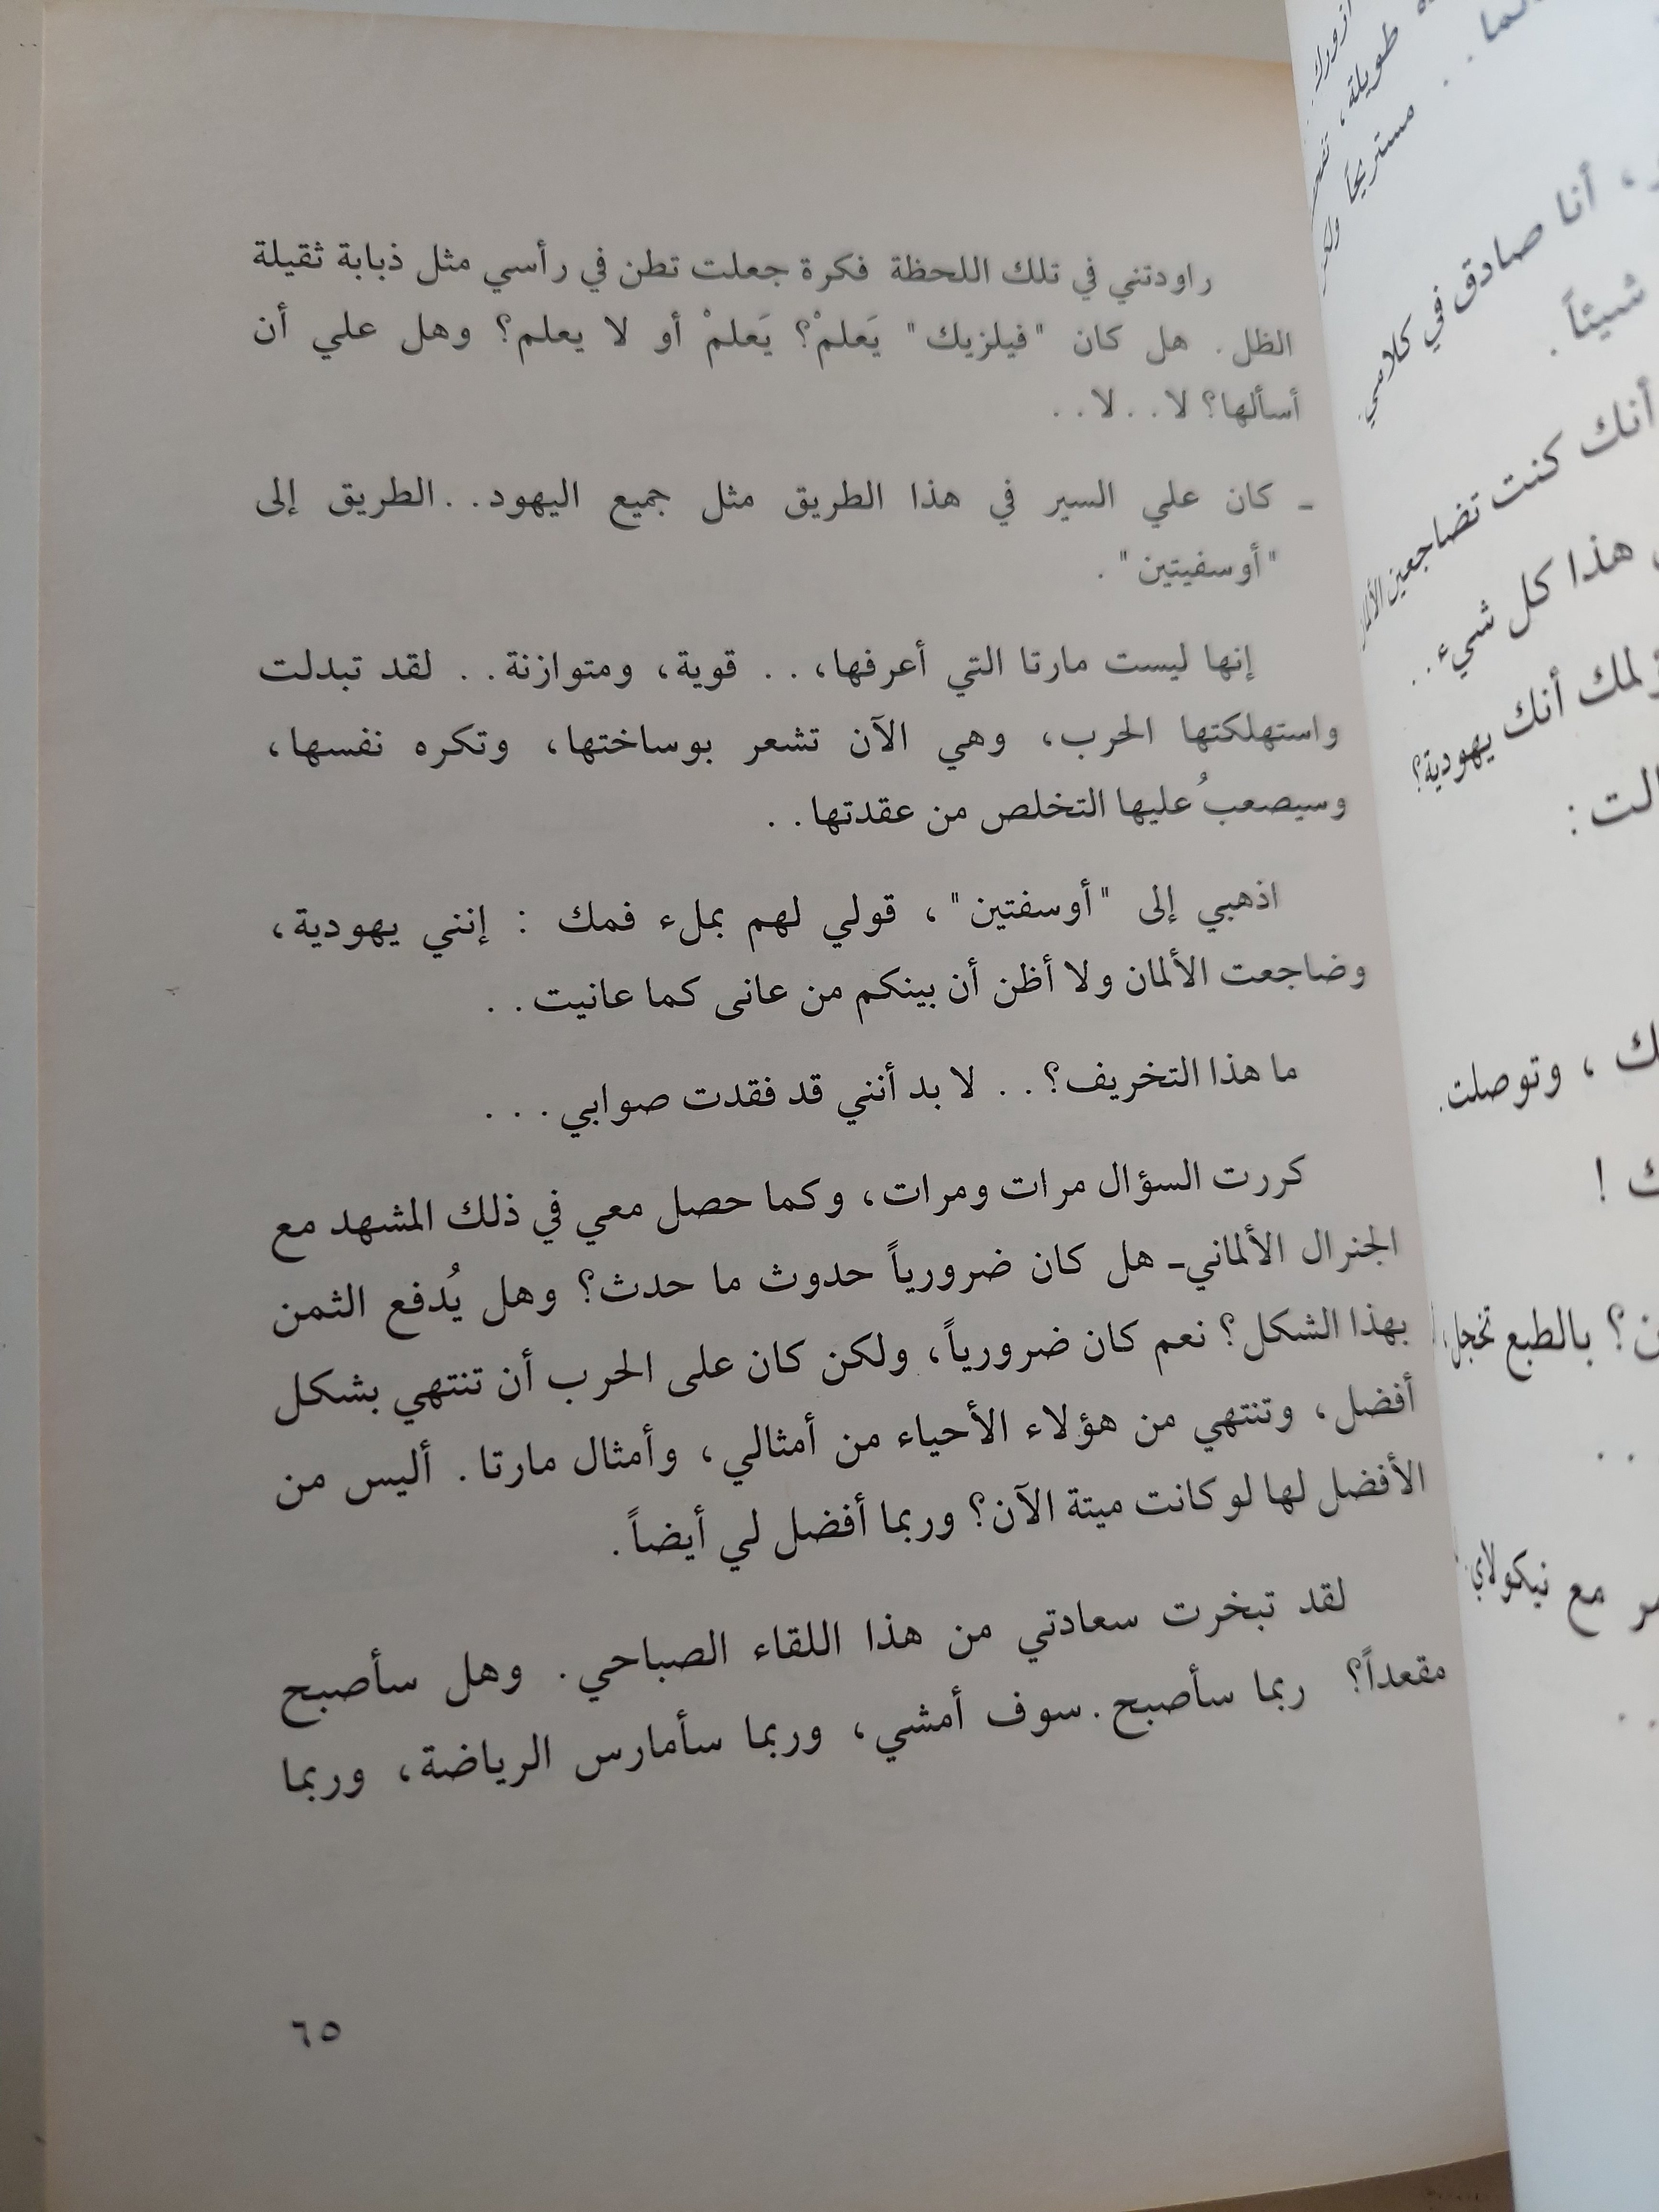 راودتني في تلك اللحظة فكرة جعلت تطن في رأسي مثل ذبابة ثقيلة
الظل. هل كان "فيلزيك" يَعلمْ؟ يَعلمْ أو لا يعلم؟ وهل علي أن
أسألها؟ لا.. لا..
ـ كان علي السير في هذا الطريق مثل جميع اليهود.. الطريق إلى
"أوسفيتين".
إنها ليست مارتا التي أعرفها،.. قوية، ومتوازنة.. لقد تبدلت
واستهلكتها الحرب، وهي الآن تشعر بوساختها، وتكره نفسها،
وسيصعبُ عليها التخلص من عقدتها..
اذهبي إلى "أوسفتين"، قولي لهم بملء فمك : إنني يهودية،
وضاجعت الألمان ولا أظن أن بينكم من عانى كما عانيت..
ما هذا التخريف؟.. لا بد أنني قد فقدت صوابي...
كررت السؤال مرات ومرات، وكما حصل معي في ذلك المشهد مع
الجنرال الألماني ـ هل كان ضرورياً حدوث ما حدث؟ وهل يُدفع الثمن
بهذا الشكل؟ نعم كان ضرورياً، ولكن كان على الحرب أن تنتهي بشكل
أفضل، وتنتهي من هؤلاء الأحياء من أمثالي، وأمثال مارتا. أليس من
الأفضل لها لو كانت ميتة الآن؟ وربما أفضل لي أيضاً.
لقد تبخرت سعادتي من هذا اللقاء الصباحي. وهل سأصبح
مقعداً؟ ربما سأصبح. سوف أمشي، وربما سأمارس الرياضة، وربما
٦٥
طويلة،
مستريحاً
، أنا صادق في كلامي
شيئاً.
أنك كنت تضاجعين
هذا كل شيء..
أنك يهودية؟
، وتوصلت
!
؟ بالطبع تخجل
مع نيكولاي